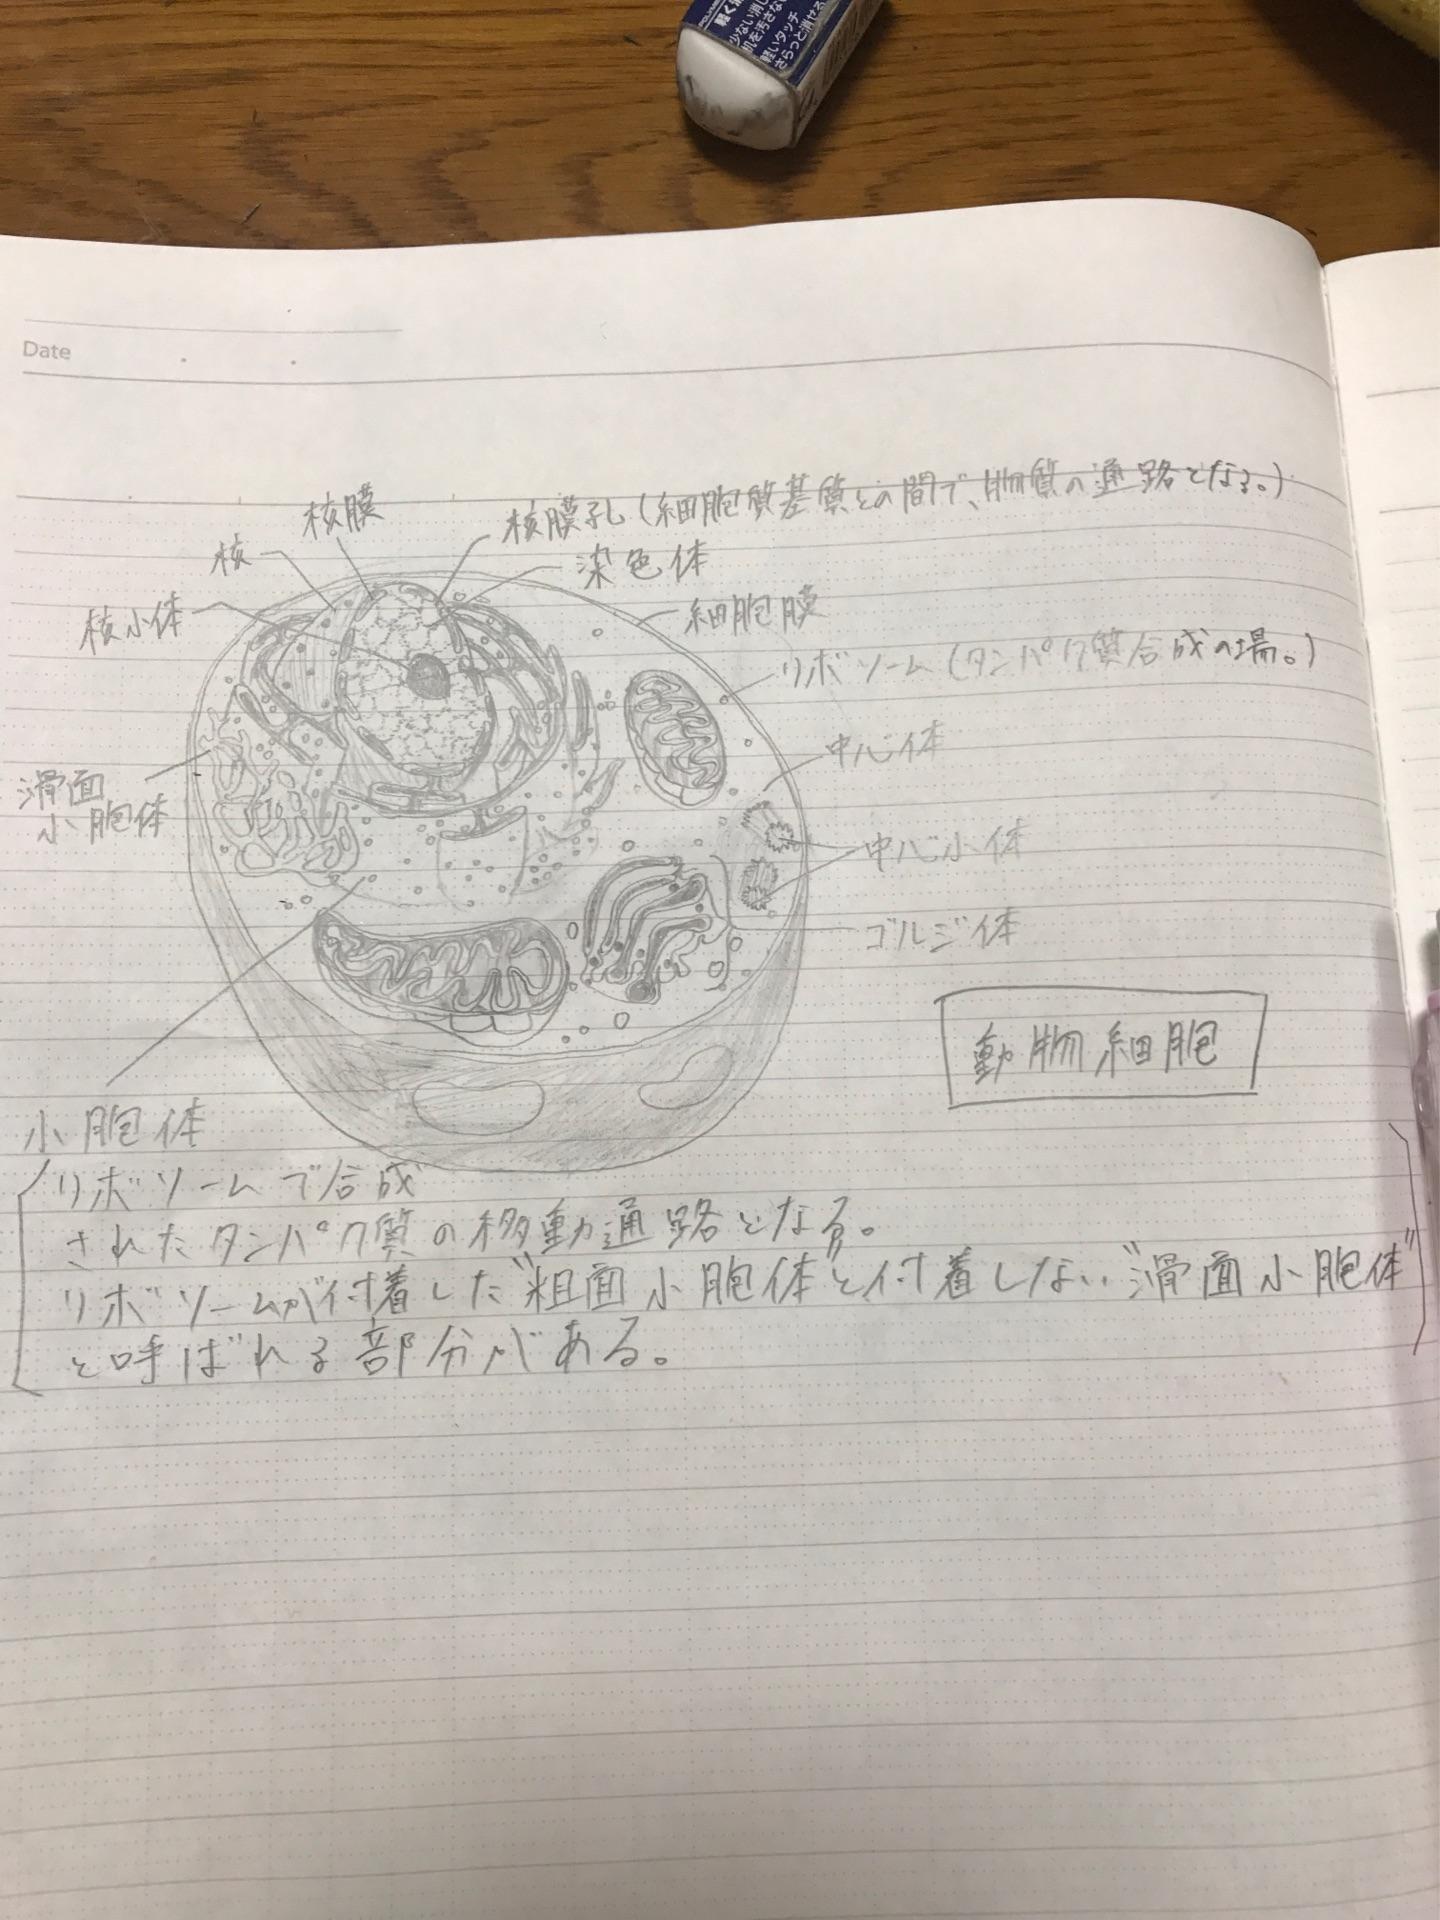 軽く消
少ない消し
机を汚さない
軽いタッチ
さらっと消せる
Date
核膜孔(細胞質基質との間で、物質の通路となる。)
核膜
核
染色体
核小体
細胞膜
リボソーム(タンパク質合成の場。)
中心体
滑面
小胞体
中心小体
ゴルジ体
動物細胞
小胞体
リボソームで合成
されたタンパク質の移動通路となる。
リボソームが付着した"粗面小胞体"と付着しない"滑面小胞体"
と呼ばれる部分がある。